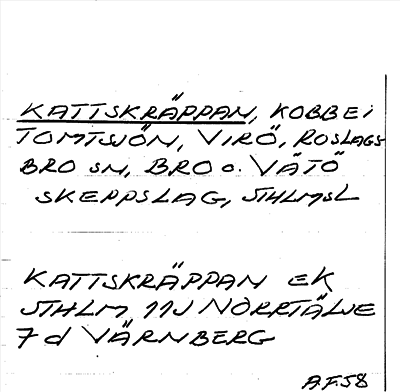 KATTSKRÄPPAN, KOBBE i
TOMTSJÖN, VIRÖ, ROSLAGS
BRO SN, BRO o. VÄTÖ
SKEPPSLAG, STHLMSL
KATTSKRÄPPAN EK
STHLM 11J NORRTÄLJE
7d VÄRNBERG
A.F.58